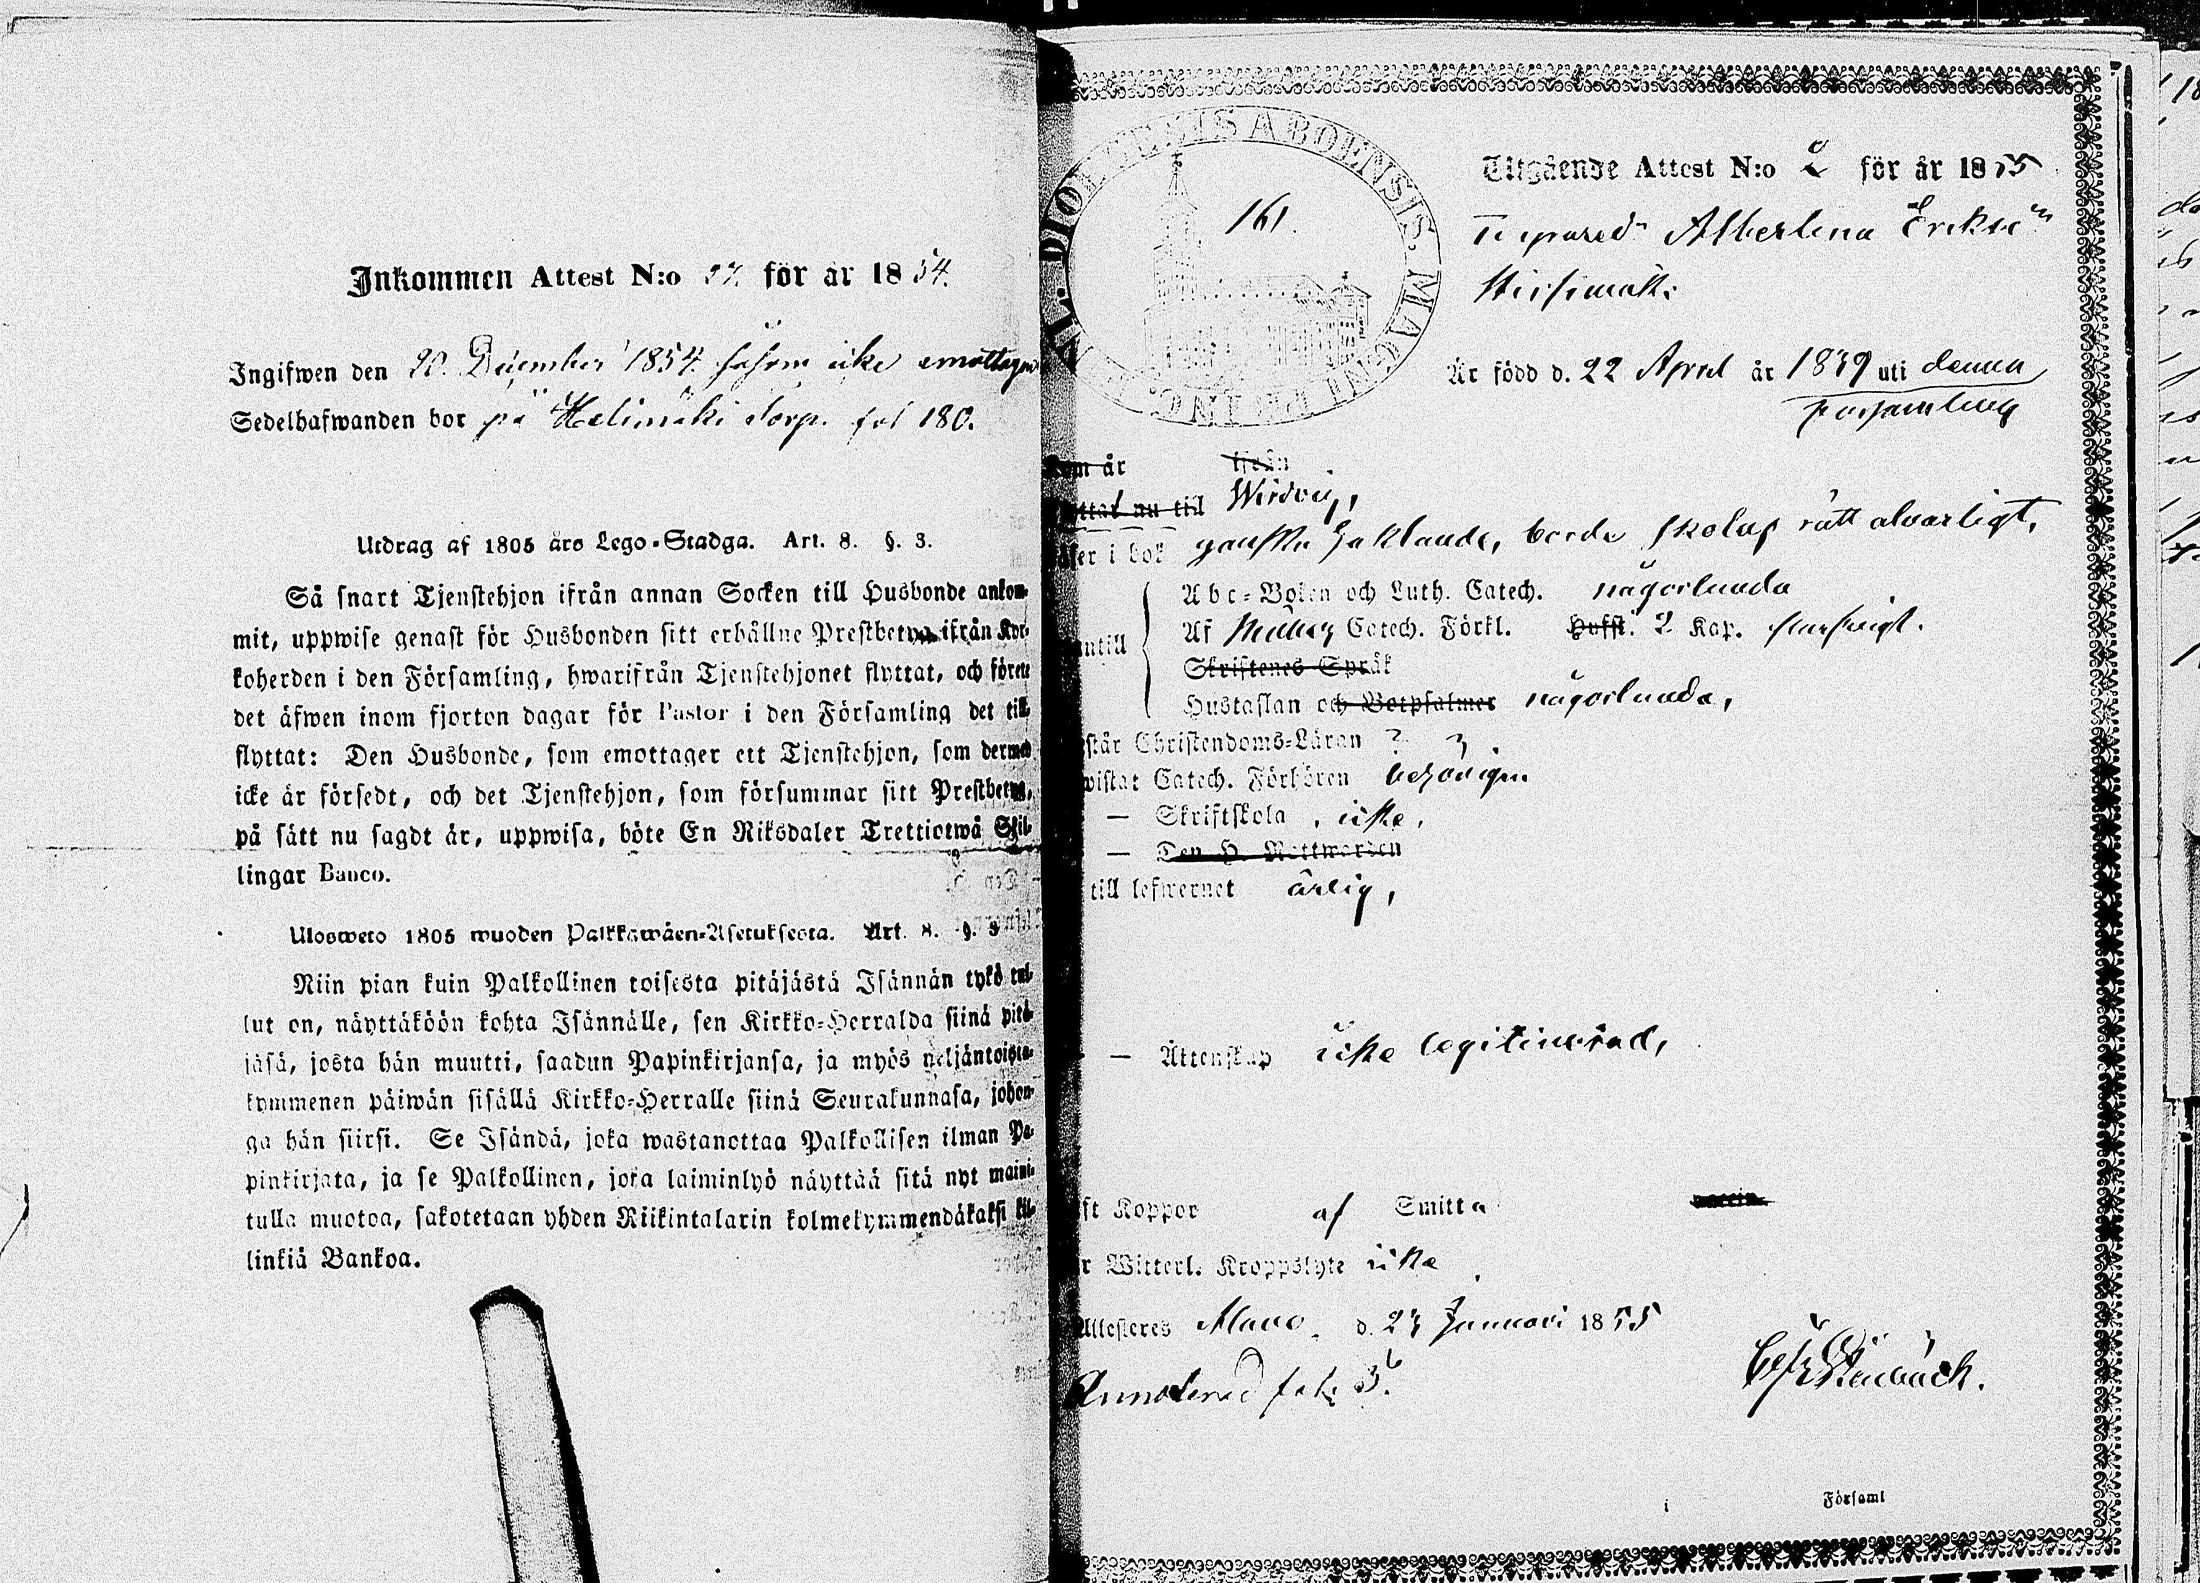 Inkommen Attest N:o 27. för år 1854.
Ingifwen den 20. December 1854. såsom icke emottagen
Sedelhafwanden bor på Helimäki torp. fol 180.
Utdrag af 1805 års Lego-Stadga. Art. 8. §. 3.
Så snart Tjenstehjon ifrån annan Socken till Husbonde ankom-
mit, uppwise genast för Husbonden sitt erhållne Prestbetyg ifrån Kyr-
koherden i den Församling, hwarifrån Tjenstehjonet flyttat, och förete
det äfwen inom fjorton dagar för Pastor i den Församling det till-
flyttat: Den Husbonde, som emottager ett Tjenstehjon, som dermed
icke är försedt, och det Tjenstehjon, som försummar sitt Prestbetyg,
på sätt nu sagdt är, uppwisa, böte En Riksdaler Trettiotwå Skil-
lingar Banco.
Ulosweto 1805 wuoden Palkkawäen-Asetuksesta. Art. 8. §. 3
Niin pian kuin Palkollinen toisesta pitäjästä Isännän tykö tul-
lut on, näyttäköön kohta Isännälle, sen Kirkko-Herralda siinä pitä-
jäsä, josta hän muutti, saadun Papinkirjansa, ja myös neljäntoista-
kymmenen päiwän sisällä Kirkko-Herralle siinä Seurakunnasa, johon-
ga hän siirsi. Se Isändä, joka wastanottaa Palkollisen ilman Pa-
pinkirjata, ja se Palkollinen, joka laiminlyö näyttää sitä nyt maini-
tulla muotoa, sakotetaan yhden Riikintalarin kolmekymmendäkaksi kil-
linkiä Bankoa.
DIOECESIS ABOENSIS. MAGNI PRINC.
161.
Utgående Attest N:o 2 för år 1855
Albertina Eriks
Är född d. 22 April år 1839 uti denna
församling
Som är ifrån
ttat nu till Wirdois,
äser i bok ganska haklande, borde skolas rätt alvarligt,
untill
Abc-Boken och Luth. Catech. någorlunda
Af Catech. Förkl. Husfl. 2 Kap.
Skriftenes Språk
Hustaflan och Botpsalmer någorlunda,
står Christendoms-Läran
wistat Catech. Förhören behörigen
— Skriftskola, icke,
— Den H. Nattwarden
till lefwernet ärlig,
— Ättenskap icke legitimerad,
ft Koppor af Smitta vaccin
r Witterl. Kroppslyte icke
Attesteras Alavo d. 23 Januari 1855
Annoterad fol: 36.
Stenbäck.
i Församl